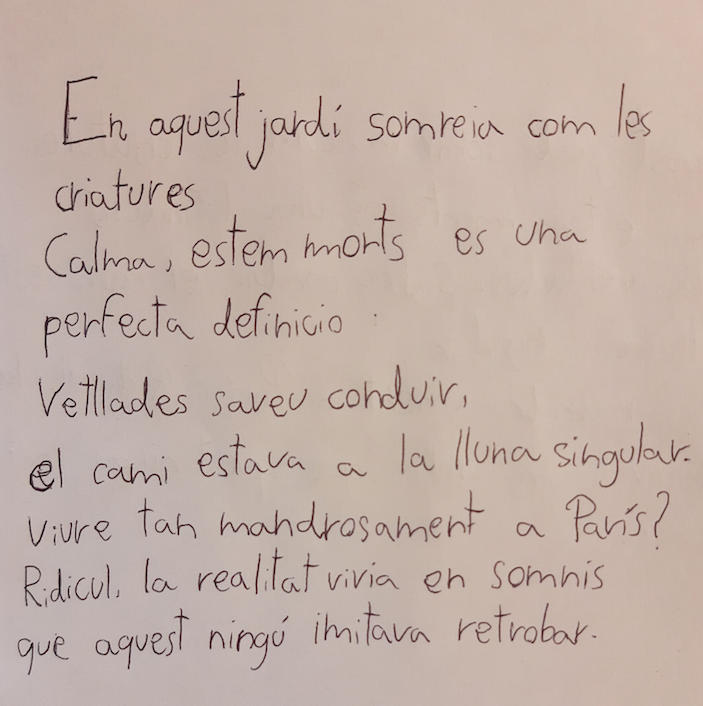 En aquest jardí somreia com les
criatures
Calma, estem morts es una
perfecta definicio.
Vetllades saveu conduir,
el cami estava a la lluna singular.
Viure tan mandrosament a París?
Ridicul, la realitat vivia en somnis
que aquest ningú imitava retrobar.